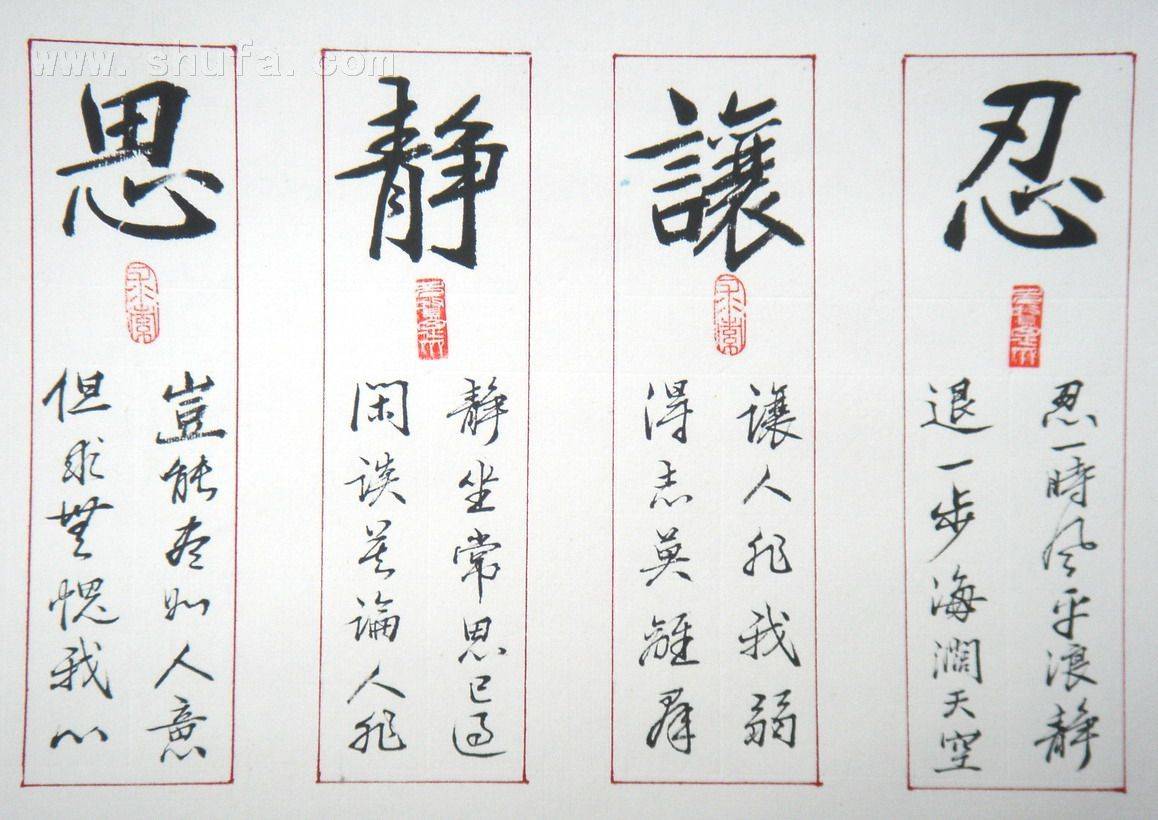 忍
忍一時风平浪静
退一步海濶天空
讓
讓人非我弱
得志莫離群
静
静坐常思己過
闲谈莫論人非
思
豈能尽如人意
但求無愧我心
www.shufa.com